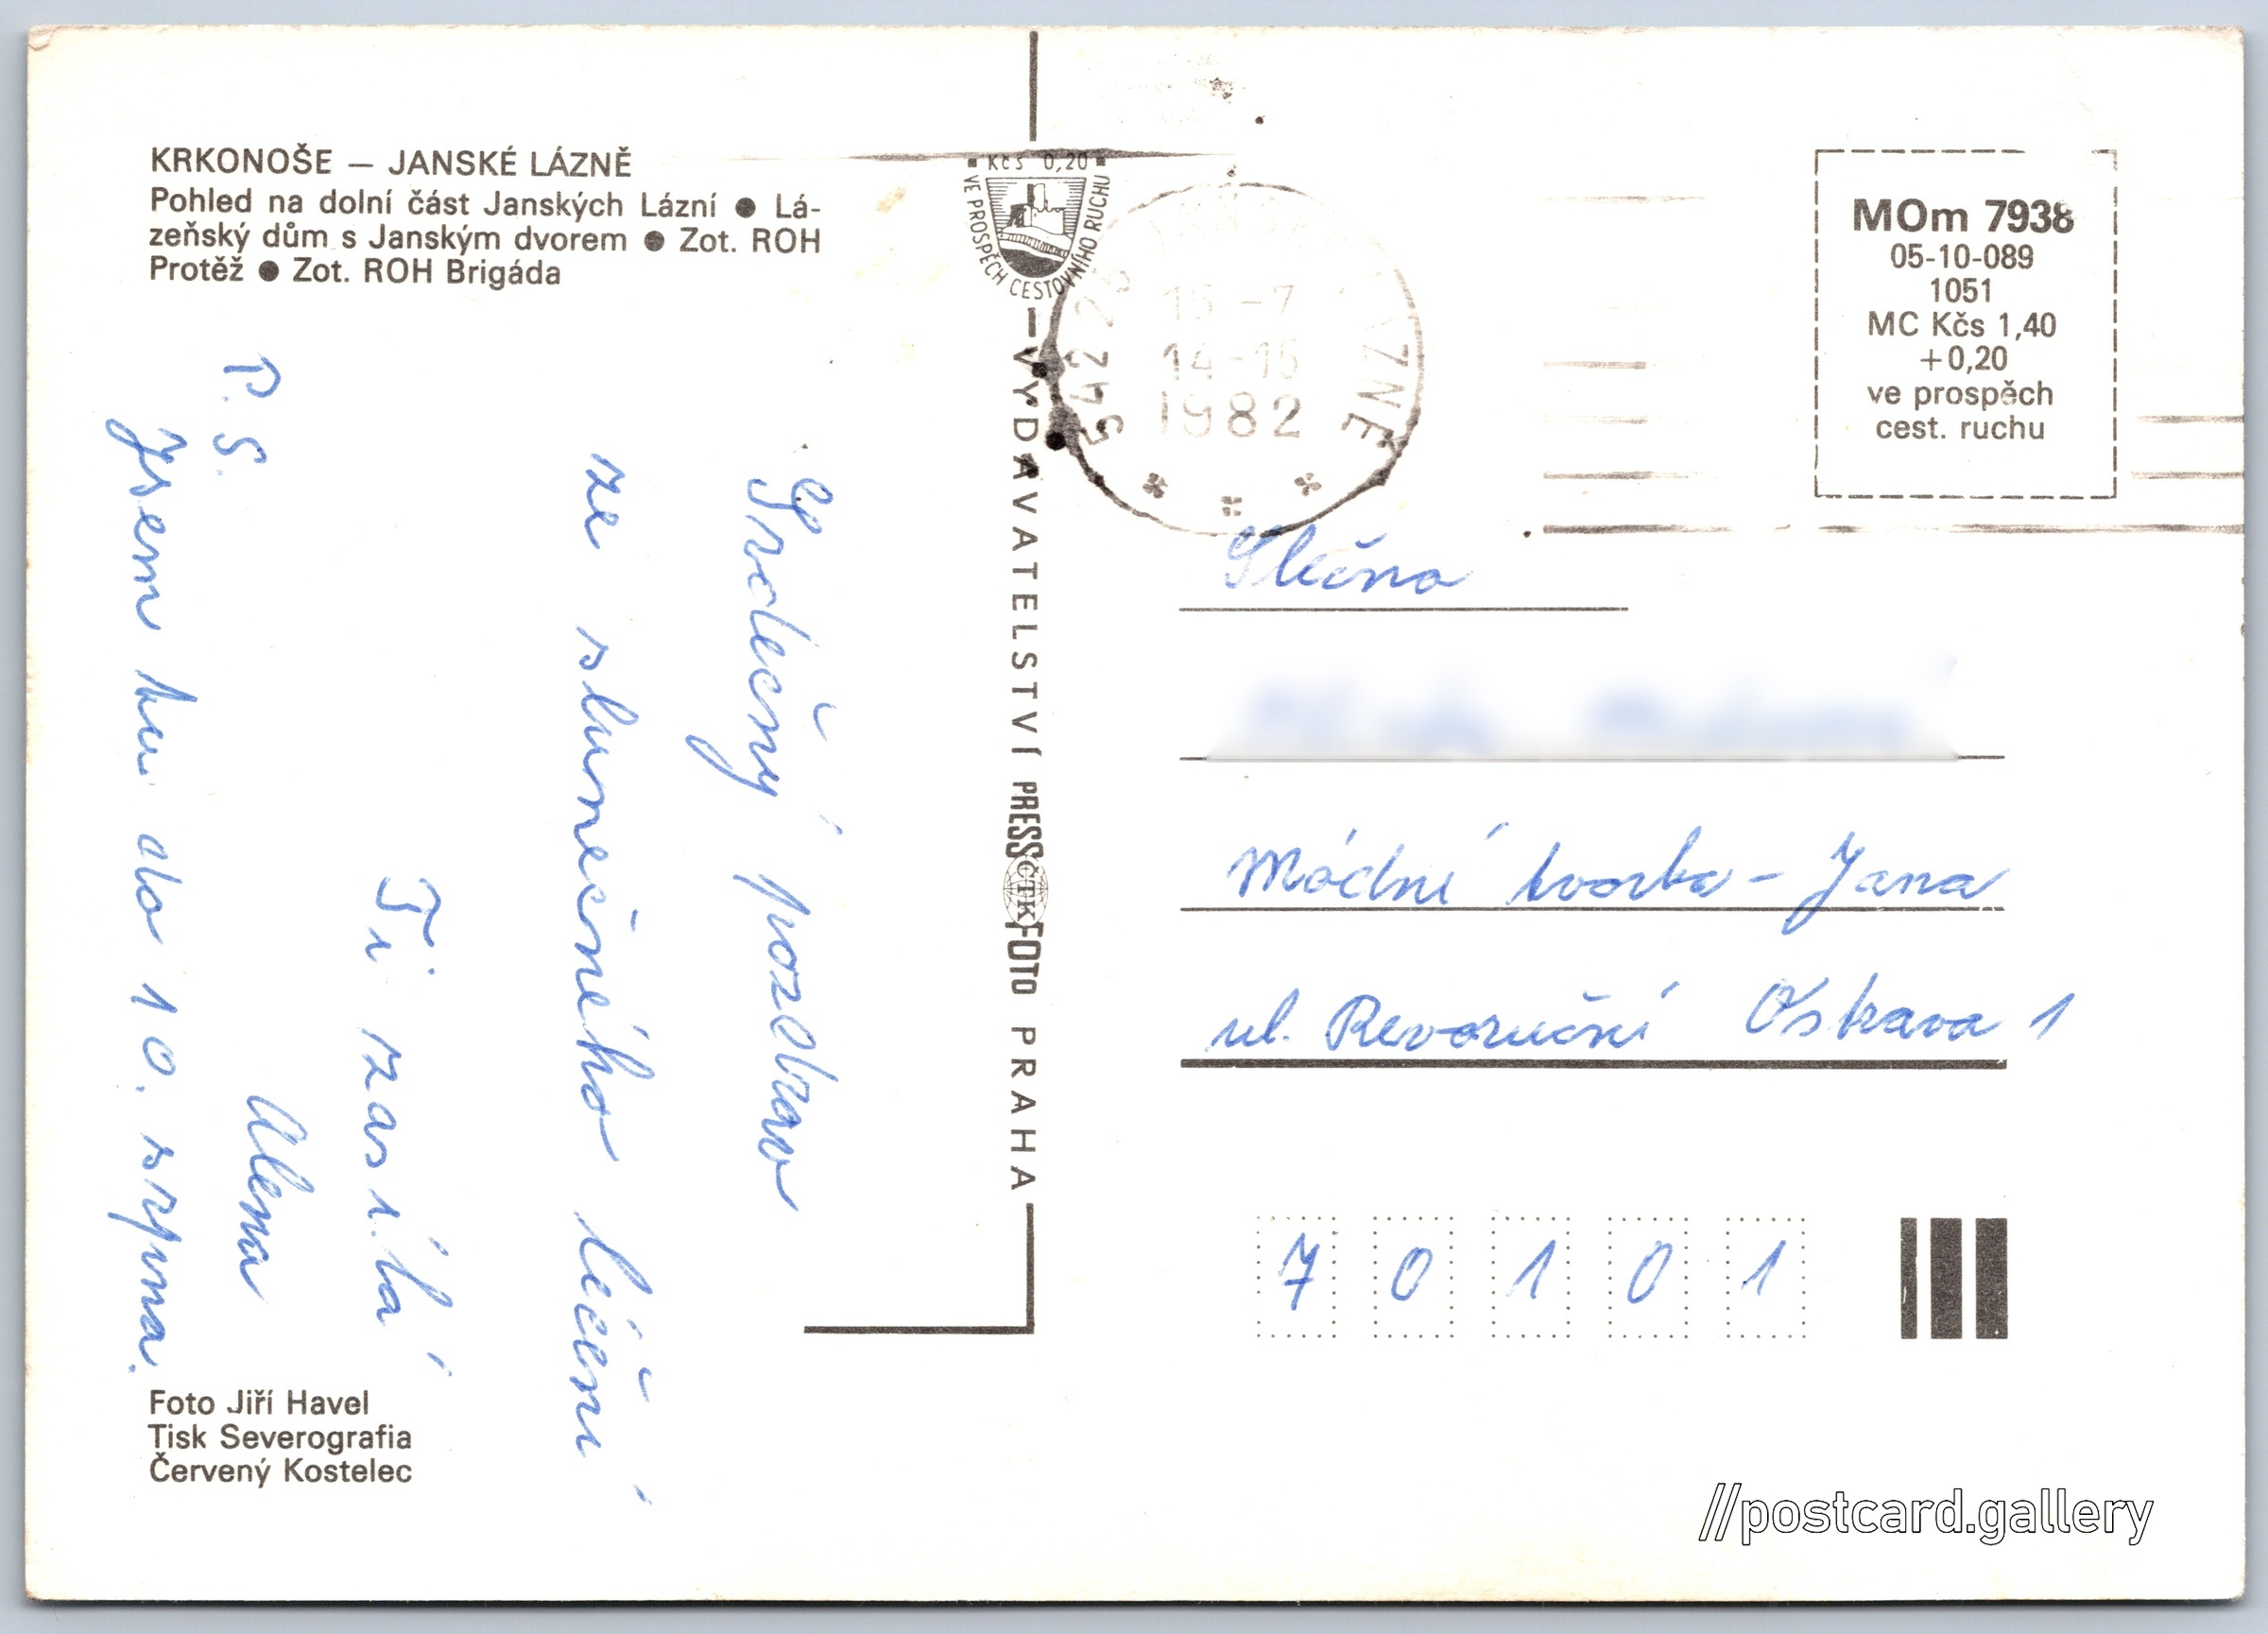 KRKONOŠE — JANSKÉ LÁZNĚ
Pohled na dolní část Janských Lázní ● Lá-
zeňský dům s Janským dvorem ● Zot. ROH
Protěž ● Zot. ROH Brigáda
Srdečný pozdrav
ze slunečného léčení
Ti zasílá
Alena
P.S.
Jsem tu do 10. srpna.
Foto Jiří Havel
Tisk Severografia
Červený Kostelec
Kčs 0,20
VE PROSPĚCH CESTOVNÍHO RUCHU
VYDAVATELSTVÍ PRESSFOTO PRAHA
ČTK
542 25
15 -7
14-15
1982
MOm 7938
05-10-089
1051
MC Kčs 1,40
+0,20
ve prospěch
cest. ruchu
Slečna
Módní tvorba - Jana
ul. Revoruční Ostrava 1
7 0 1 0 1
//postcard.gallery